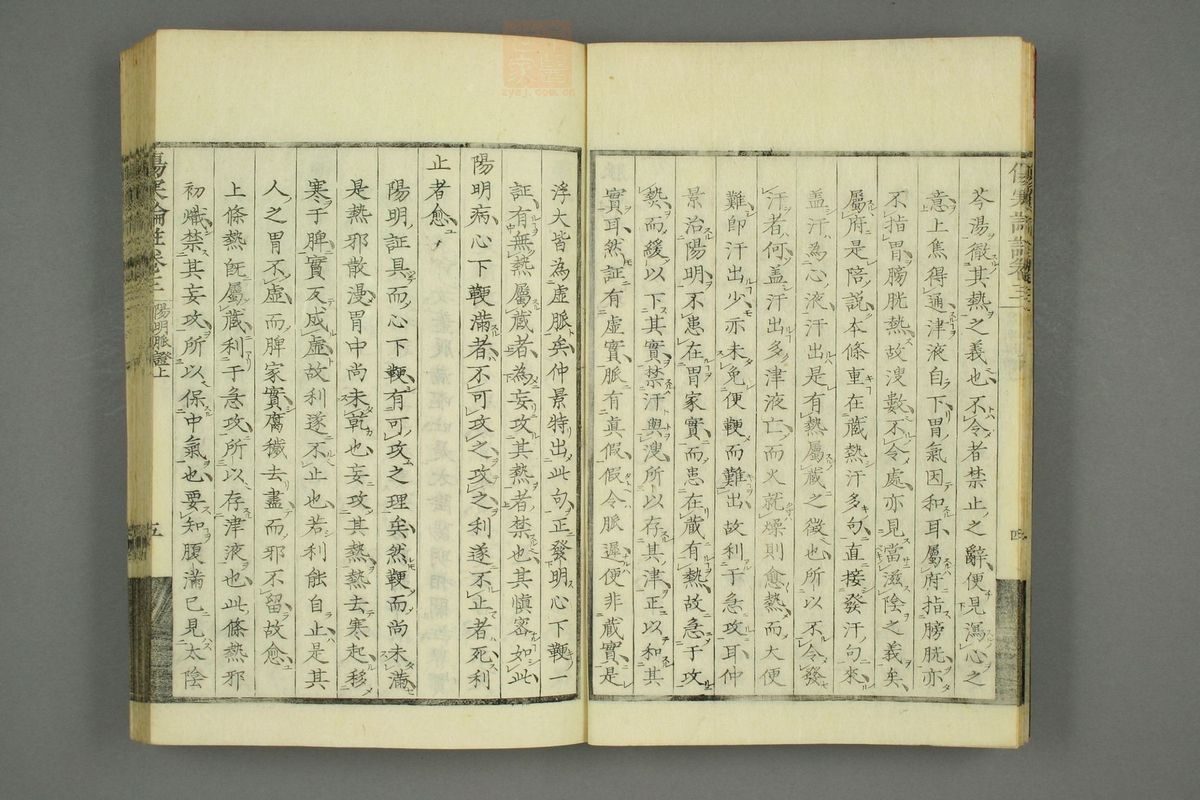 芩湯徹其熱之義也不令者禁止之辭便見瀉心之
意上焦得通津液自下胃氣因和耳屬府指膀胱亦
不指胃膀胱熱故溲數不令處亦見當滋陰之義矣
屬府是陪説本條重在藏熱汗多句直接發汗句來
盖汗為心液汗出是有熱屬藏之徵也所以不令發
汗者何盖汗出多津液亡而火就燥則愈熱而大便
難即汗出少亦未免便鞕而難出故利于急攻耳仲
景治陽明不患在胃家實而患在藏有熱故急于攻
熱而緩以下其實禁汗與溲所以存其津正以和其
實耳然証有虛實脈有真假假令脈遲便非藏實是
四
浮大皆為虛脈矣仲景特出此句正發明心下鞕一
証有無熱屬藏者為妄攻其熱者禁也其慎密如此
陽明病心下鞕滿者不可攻之攻之利遂不止者死利
止者愈
陽明証具而心下鞕有可攻之理矣然鞕而尚未滿
是熱邪散漫胃中尚未乾也妄攻其熱熱去寒起移
寒于脾實反成虛故利遂不止也若利能自止是其
人之胃不虛而脾家實腐穢去盡而邪不留故愈
上條熱旣屬藏利于急攻所以存津液也此條熱邪
初熾禁其妄攻所以保中氣也要知腹滿已見太陰
傷寒論註卷三 陽明脈證上
五
zysj.com.cn